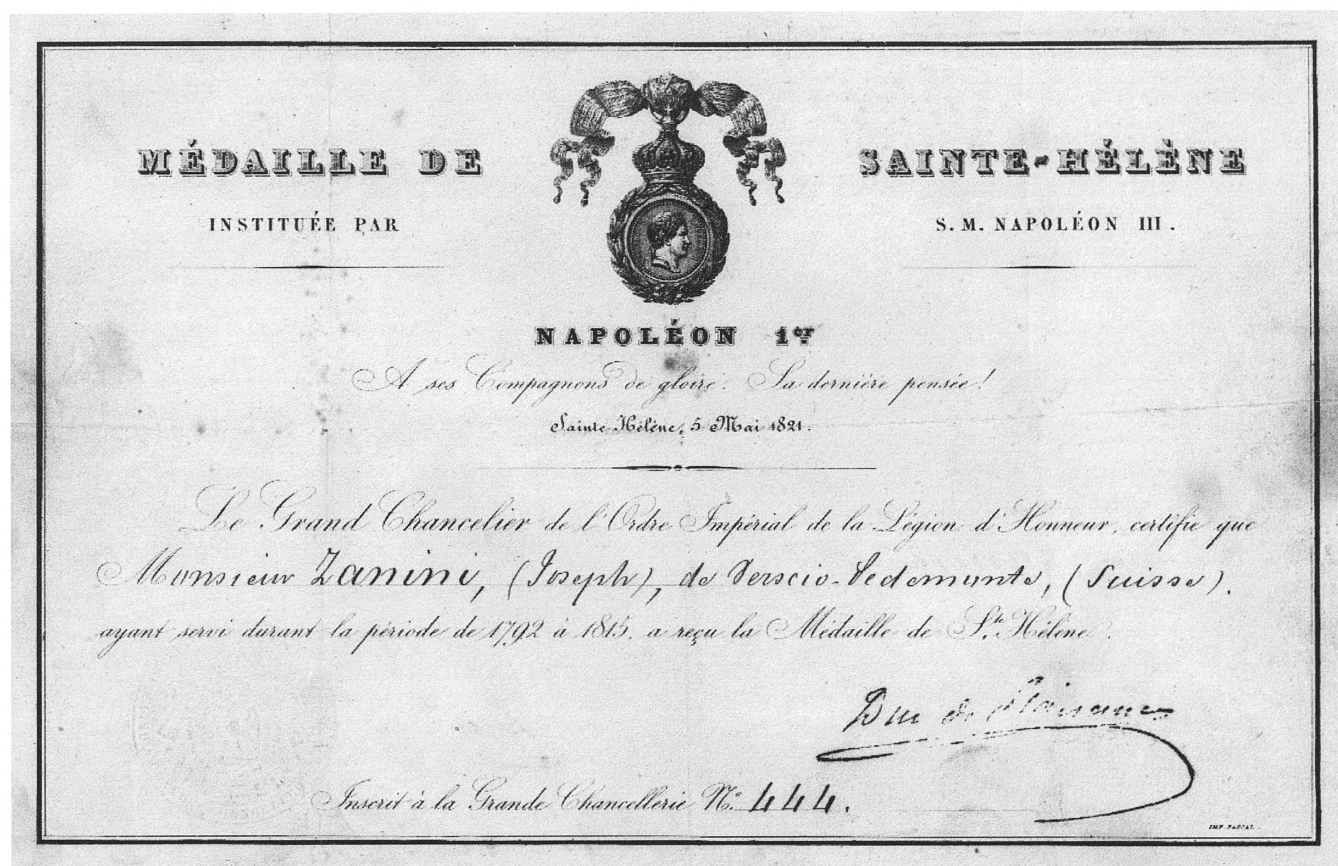 MÉDAILLE DE SAINTE-HÉLÈNE
INSTITUÉE PAR S. M. NAPOLÉON III.
NAPOLÉON 1er
A ses Compagnons de gloire. Sa dernière pensée!
Sainte-Hélène, 5 Mai 1821.
Le Grand Chancelier de l'Ordre Impérial de la Légion d'Honneur, certifie que
Monsieur Zanini, (Joseph), de Verscio-Pedemonte, (Suisse).
ayant servi durant la période de 1792 à 1815, a reçu la Médaille de Ste Hélène.
Duc de Plaisance
Inscrit à la Grande Chancellerie No. 444.
IMP. PASCAL.